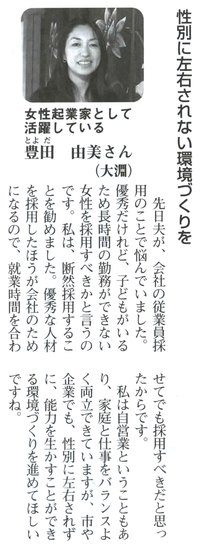 性別に左右されない環境づくりを
女性起業家として
活躍している
とよだ
豊田　由美さん
（大淵）
　先日夫が、会社の従業員採
用のことで悩んでいました。
優秀だけれど、子どもがいる
ため長時間の勤務ができない
女性を採用すべきかと言うの
です。私は、断然採用するこ
とを勧めました。優秀な人材
を採用したほうが会社のため
になるので、就業時間を合わ
せてでも採用すべきだと思っ
たからです。
　私は自営業ということもあ
り、家庭と仕事をバランスよ
く両立できていますが、市や
企業でも、性別に左右されず
に、能力を生かすことができ
る環境づくりを進めてほしい
ですね。